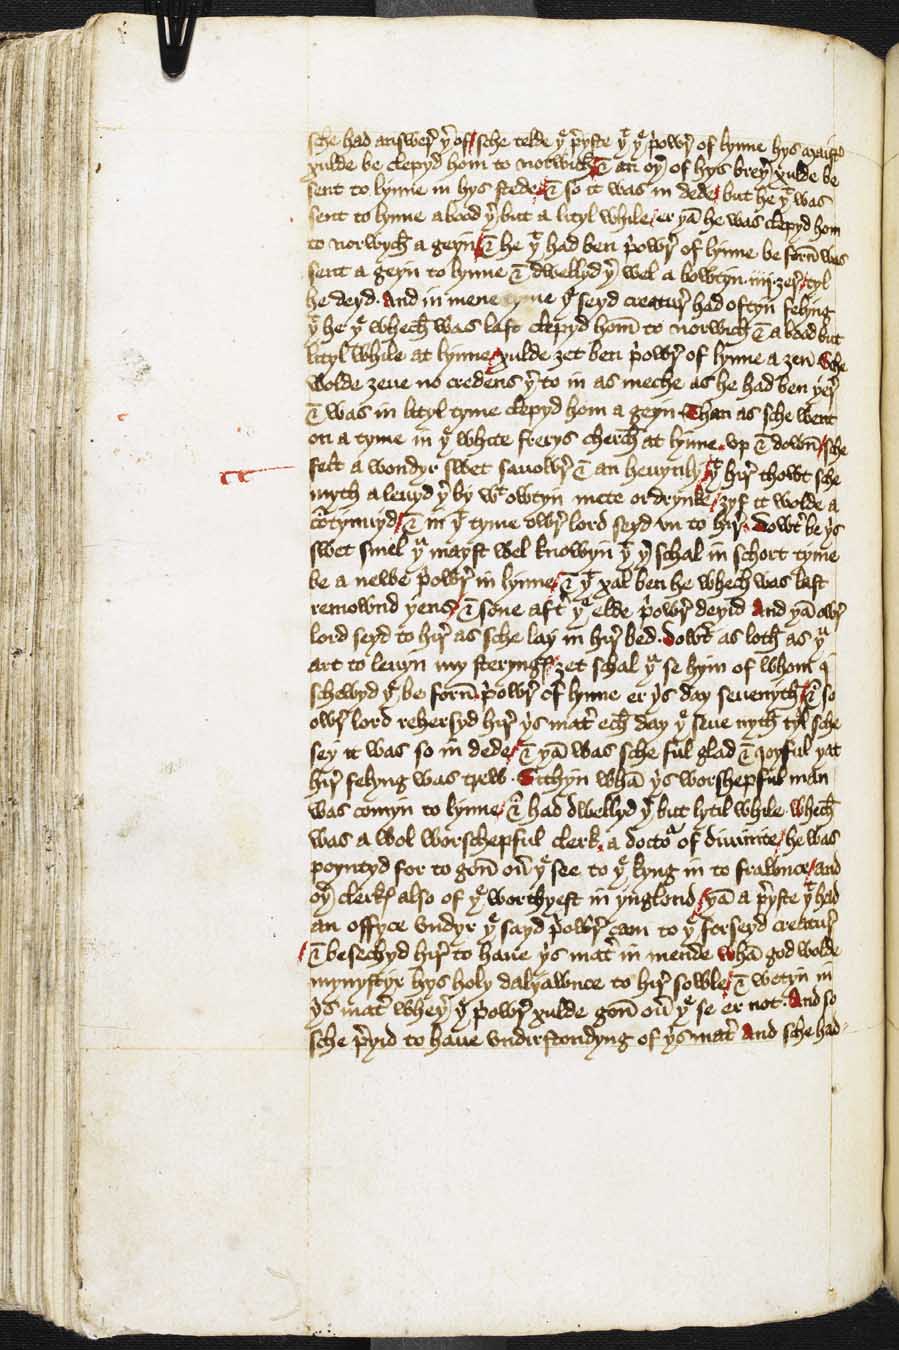 sche had answer yͬ of / sche telde yͤ pͬyste yͭ yͤ pͬowr of lynne hys maistͬ
xulde be clepyd hom to norwich / & an oyͬ of hys breyͬ xulde be
sent to lynne in hys stede / & so it was in dede / but he yͭ was
sent to lynne abood yͬ but a lityl while / er yā he was clepyd hom
to norwych a geyn / & he yͭ had ben pͬowr of lynne be forn was
sent a geyn to lynne & dwellyd yͬ wel a bowtyn .iiij. ȝer / tyl
he deyd . And in mene tyme yͤ seyd creatur had oftyn felyng
yͭ he yͭ whech was last clepyd hom to norwich & a bood but
lityl while at lynne / xulde ȝet ben pͬowr of lynne a ȝen Sche
wolde ȝeue no credens yͬ to in as meche as he had ben yer
& was in lityl tyme clepyd hom a geyn . Than as sche went
on a tyme in yͤ white frerys cherch at lynne . vp & down / sche
felt a wondyr swet sauowr & an heuynly / yͭ hir thowt sche
myth a leuyd yͬ by wͭ owtyn mete or drynke / ȝyf it wolde a
cōtynuyd / & in yͭ tyme owr lord seyd vn to hir . Dowtͬ be yͥs
swet smel yͧ mayst wel knowyn yͭ yͬ schal in schort tyme
be a newe pͬowr in lynne / & yͭ xal ben he whech was last
remownd yens / & sone aftͬ yͤ elde pͬowr deyid And yā owr
lord seyd to hir as sche lay in hir bed . Dowtͬ as loth as yͧ
art to leuyn my steringys / ȝet schal yͧ se hym of whom I
schewyd yͤ be forn pͬowr of lynne er yͥs day seuenyth / & so
owr lord rehersyd hir yͥs matͬ ech day yͤ seue nyth tyl sche
sey it was so in dede / & yā was sche ful glad & joyful yat
hir felyng was trew . Sithyn whā yͥs worshepful man
was comyn to lynne / & had dwellyd yͬ but lytil while . whech
was a wol worschepful clerk . a doctoͬ of diuinite / he was
poyntyd for to gon ouͬ yͤ see to yͤ kyng in to frawnce / and
oyͬ clerkys also of yͤ worthyest in ynglond / yā a pͬyste yͭ had
an offyce vndyr yͤ sayd pͬowr cam to yͤ forseyd creatur
/ & besechyd hir to haue yͥs matͬ in mende whā god wolde
mynystyr hys holy dalyawnce to hir sowle / & wetyn in
yͥs matͬ wheyͬ yͤ pͬowr xulde gon ouͬ yͤ se er not . And so
sche pͬyid to haue vndirstondyng of yͥs matͬ And sche had